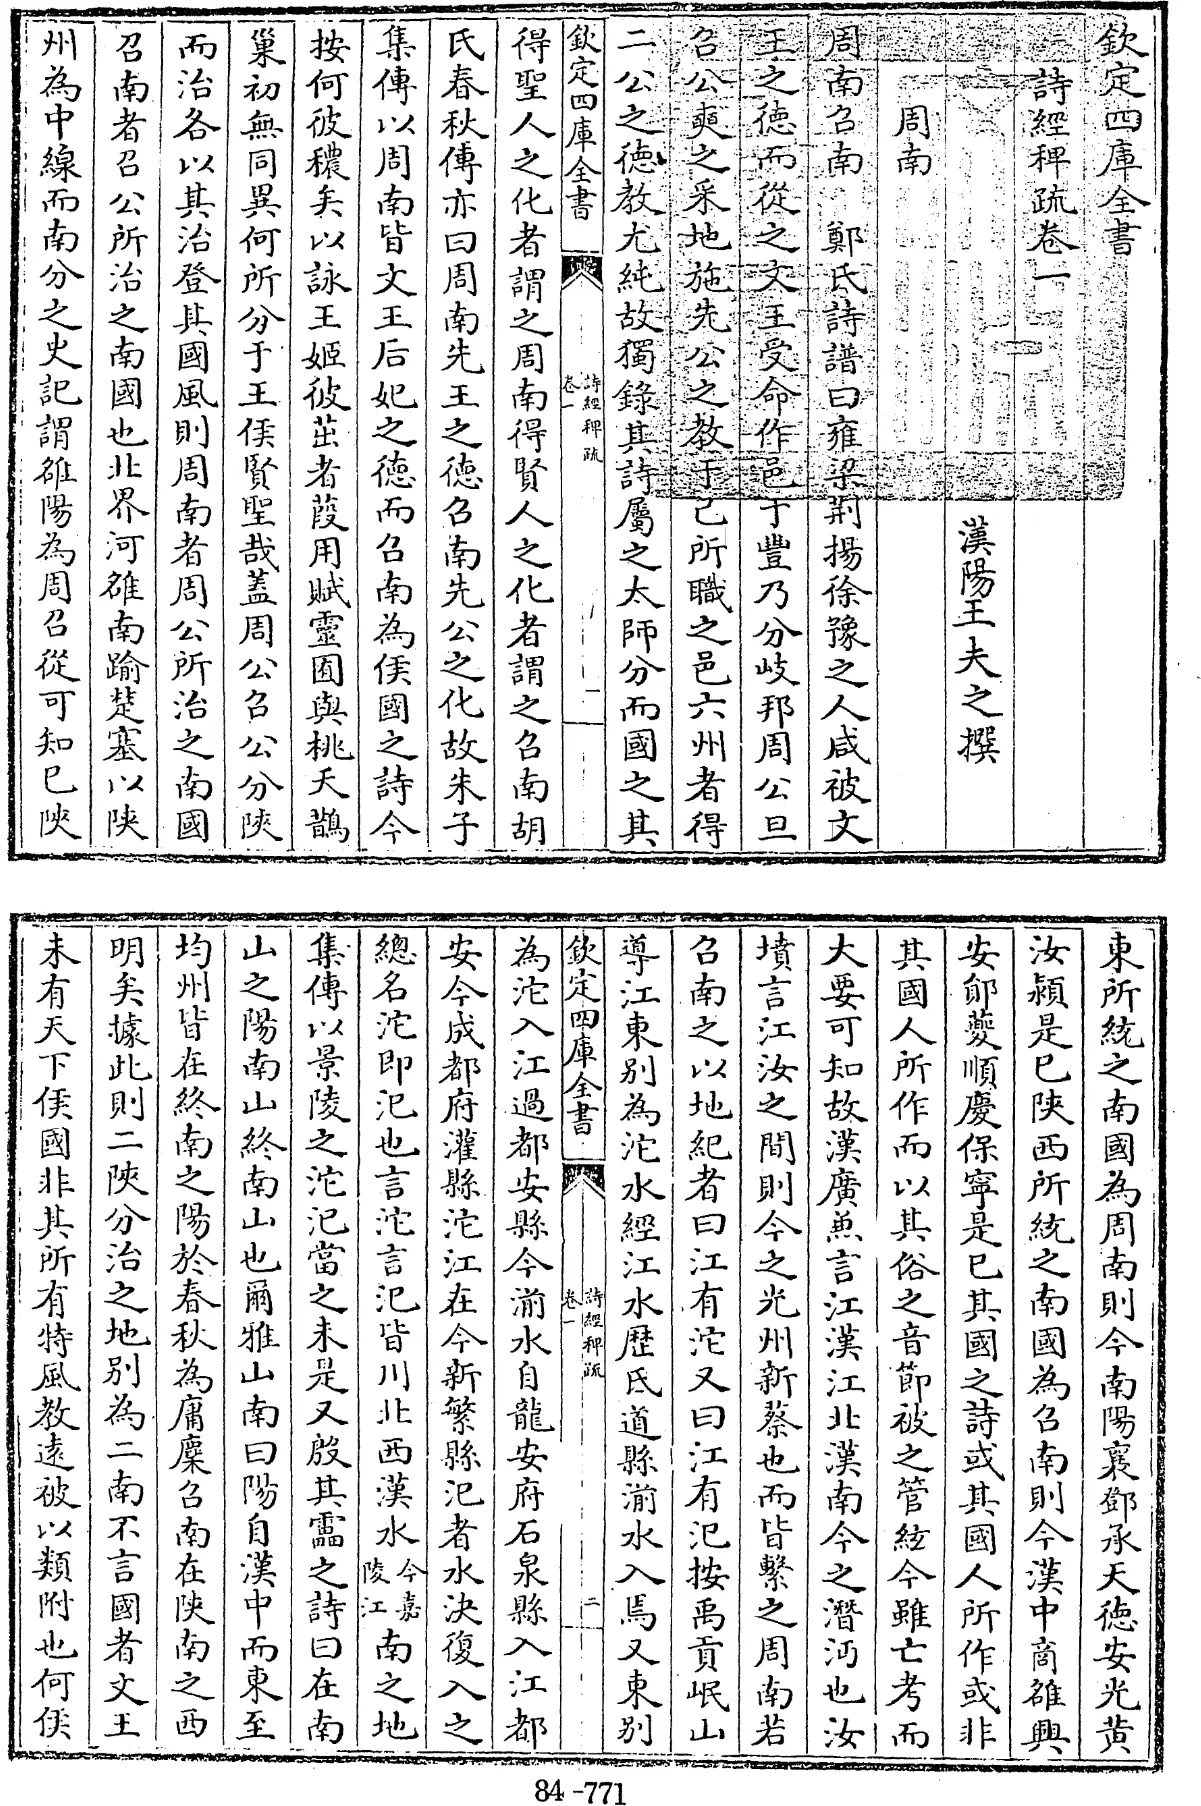 欽定四庫全書
詩經稗疏卷一
漢陽王夫之撰
周南
周南召南　鄭氏詩譜曰雍梁荆揚徐豫之人咸被文
王之德而從之文王受命作邑于豐乃分岐邦周公旦
召公奭之采地施先公之教于己所職之邑六州者得
二公之德教尤純故獨錄其詩屬之太師分而國之其
欽定四庫全書
詩經稗疏
卷一
一
得聖人之化者謂之周南得賢人之化者謂之召南胡
氏春秋傳亦曰周南先王之德召南先公之化故朱子
集傳以周南皆文王后妃之德而召南為侯國之詩今
按何彼穠矣以詠王姬彼茁者葭用賦靈囿與桃夭鵲
巢初無同異何所分于王侯賢聖哉蓋周公召公分陝
而治各以其治登其國風則周南者周公所治之南國
召南者召公所治之南國也北界河雒南踰楚塞以陝
州為中線而南分之史記謂雒陽為周召從可知已陝
東所統之南國為周南則今南陽襄鄧承天德安光黃
汝潁是已陝西所統之南國為召南則今漢中商雒興
安鄖夔順慶保寧是已其國之詩或其國人所作或非
其國人所作而以其俗之音節被之管絃今雖亡考而
大要可知故漢廣兼言江漢江北漢南今之潛沔也汝
墳言江汝之間則今之光州新蔡也而皆繫之周南若
召南之以地紀者曰江有沱又曰江有汜按禹貢岷山
導江東別為沱水經江水歷氐道縣湔水入焉又東別
欽定四庫全書
詩經稗疏
卷一
二
為沱入江過都安縣今湔水自龍安府石泉縣入江都
安今成都府灌縣沱江在今新繁縣汜者水決復入之
總名沱即汜也言沱言汜皆川北西漢水今嘉陵江南之地
集傳以景陵之沱汜當之未是又殷其靁之詩曰在南
山之陽南山終南山也爾雅山南曰陽自漢中而東至
均州皆在終南之陽於春秋為庸麇召南在陝南之西
明矣據此則二陝分治之地別為二南不言國者文王
未有天下侯國非其所有特風教遠被以類附也何侯
84-771